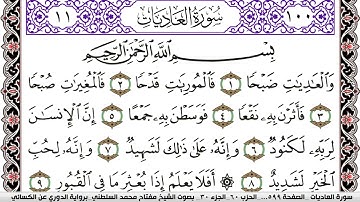 ١٠٠ سُورَةُ العَادِيَات ١١
بِسْمِ اللَّهِ الرَّحْمَٰنِ الرَّحِيمِ
وَالْعَٰدِيَٰتِ ضَبْحًا ١ فَالْمُورِيَٰتِ قَدْحًا ٢ فَالْمُغِيرَٰتِ صُبْحًا
٣ فَأَثَرْنَ بِهِ نَقْعًا ٤ فَوَسَطْنَ بِهِ جَمْعًا ٥ إِنَّ الْإِنسَٰنَ
لِرَبِّهِ لَكَنُودٌ ٦ وَإِنَّهُ عَلَىٰ ذَٰلِكَ لَشَهِيدٌ ٧ وَإِنَّهُ لِحُبِّ
الْخَيْرِ لَشَدِيدٌ ٨ أَفَلَا يَعْلَمُ إِذَا بُعْثِرَ مَا فِي الْقُبُورِ ٩
سورة العاديات الصفحة ٥٩٩ الحزب ٦٠ الجزء ٣٠ بصوت الشيخ مفتاح محمد السلطني برواية الدوري عن الكسائي